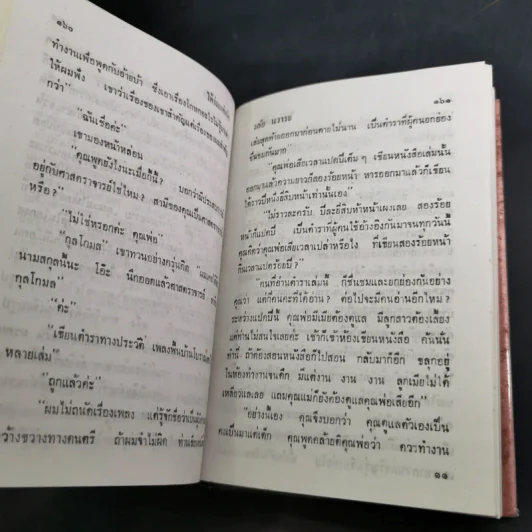 ๑๖๐
ทำงานเพื่อพูดกับอ้ายบ้า ซึ่งเอาเรื่องโกหก
ให้ผมฟัง เขาว่าเรื่องของเขาสำคัญ
กว่า"
"ฉันเชื่อค่ะ"
เขามองหน้าหล่อน
"คุณพูดยังไงนะเมื่อกี้นี้? บอกว่ามี
อยู่กับศาสตราจารย์ใช่ไหม? สามีของคุณเป็น
หรือ?"
"ไม่ใช่หรอกค่ะ คุณพ่อ"
"กุลโกมล" เขาทวนอย่างครุ่นคิด
นามสกุลนี้นะ โอ๊ะ นึกออกแล้วศาสตราจารย์
กุลโกมล"
"ค่ะ"
"เขียนตำราทางประวัติ เพลงพื้นบ้าน
หลายเล่ม"
"ถูกแล้วค่ะ"
"ผมไม่ถนัดเรื่องเพลง แต่รู้จักชื่อว่าเป็น
กว้างขวางทางดนตรี ถ้าผมจำไม่ผิด
๑๖๑
เล่มสุดท้ายออกมาก่อนตายไม่นาน เป็นตำราที่ผู้คนยกย่อง
ชื่นชมกันมาก"
"คุณพ่อเสียเวลาแปดปีเต็ม ๆ เขียนหนังสือเล่มนั้น
ออกมาแล้วความยาวก็สองร้อยหน้า หารออกมาแล้วก็เขียน
ได้ราวปีหนึ่งยี่สิบห้าหน้าเท่านั้นเอง"
"ไม่ราวละครับ ปีละยี่สิบห้าหน้าเผงเลย สองร้อย
หน้าก็แปดปี เป็นตำราที่ผู้คนใช้อ้างอิงกันมาจนทุกวันนี้
คุณคิดว่าคุณพ่อเสียเวลาเปล่าหรือไง ที่เขียนสองร้อยหน้า
กินเวลาแปดร้อยปี?"
"คนที่อ่านตำราเล่มนี้ ก็ชื่นชมและยกย่องกันอย่าง
คุณว่า แต่กี่คนคะที่ได้อ่าน? ต่อไปจะมีคนอ่านอีกไหม?
ระหว่างแปดปีนั้น คุณพ่อมีเมียต้องดูแล มีลูกสาวต้องเลี้ยง
แต่ท่านไม่สนใจเลยค่ะ เช้าก็เข้าห้องเขียนหนังสือ
ท่านมี ถ้าต้องสอนหนังสือก็ไปสอน กลับมาก็อีก ขลุกอยู่
ในห้องทำงานจนดึก มีแต่งาน งาน งาน ลูกเมียไม่ได้
เหลียวแลเลย แถมคุณแม่ก็ยังต้องดูแลคุณพ่อเสียอีก"
"อย่างนี้เอง คุณจึงบอกว่า คุณดูแลตัวเองเป็น
คนเป็นมาแต่เด็ก คุณพูดคล้ายติคุณพ่อว่า ควรทำงาน
๑๑